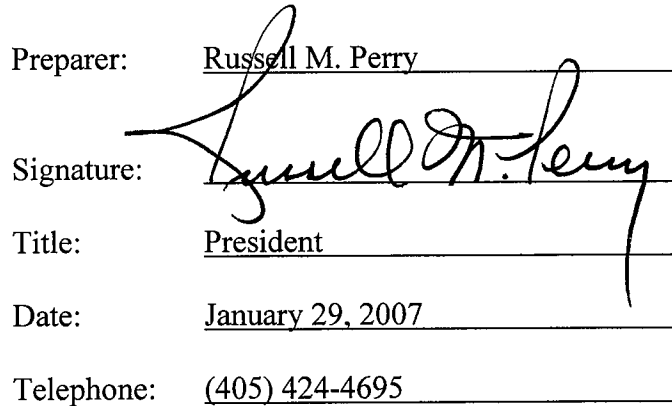 Preparer: Russell M. Perry
Signature: Russell M. Perry
Title: President
Date: January 29, 2007
Telephone: (405) 424-4695